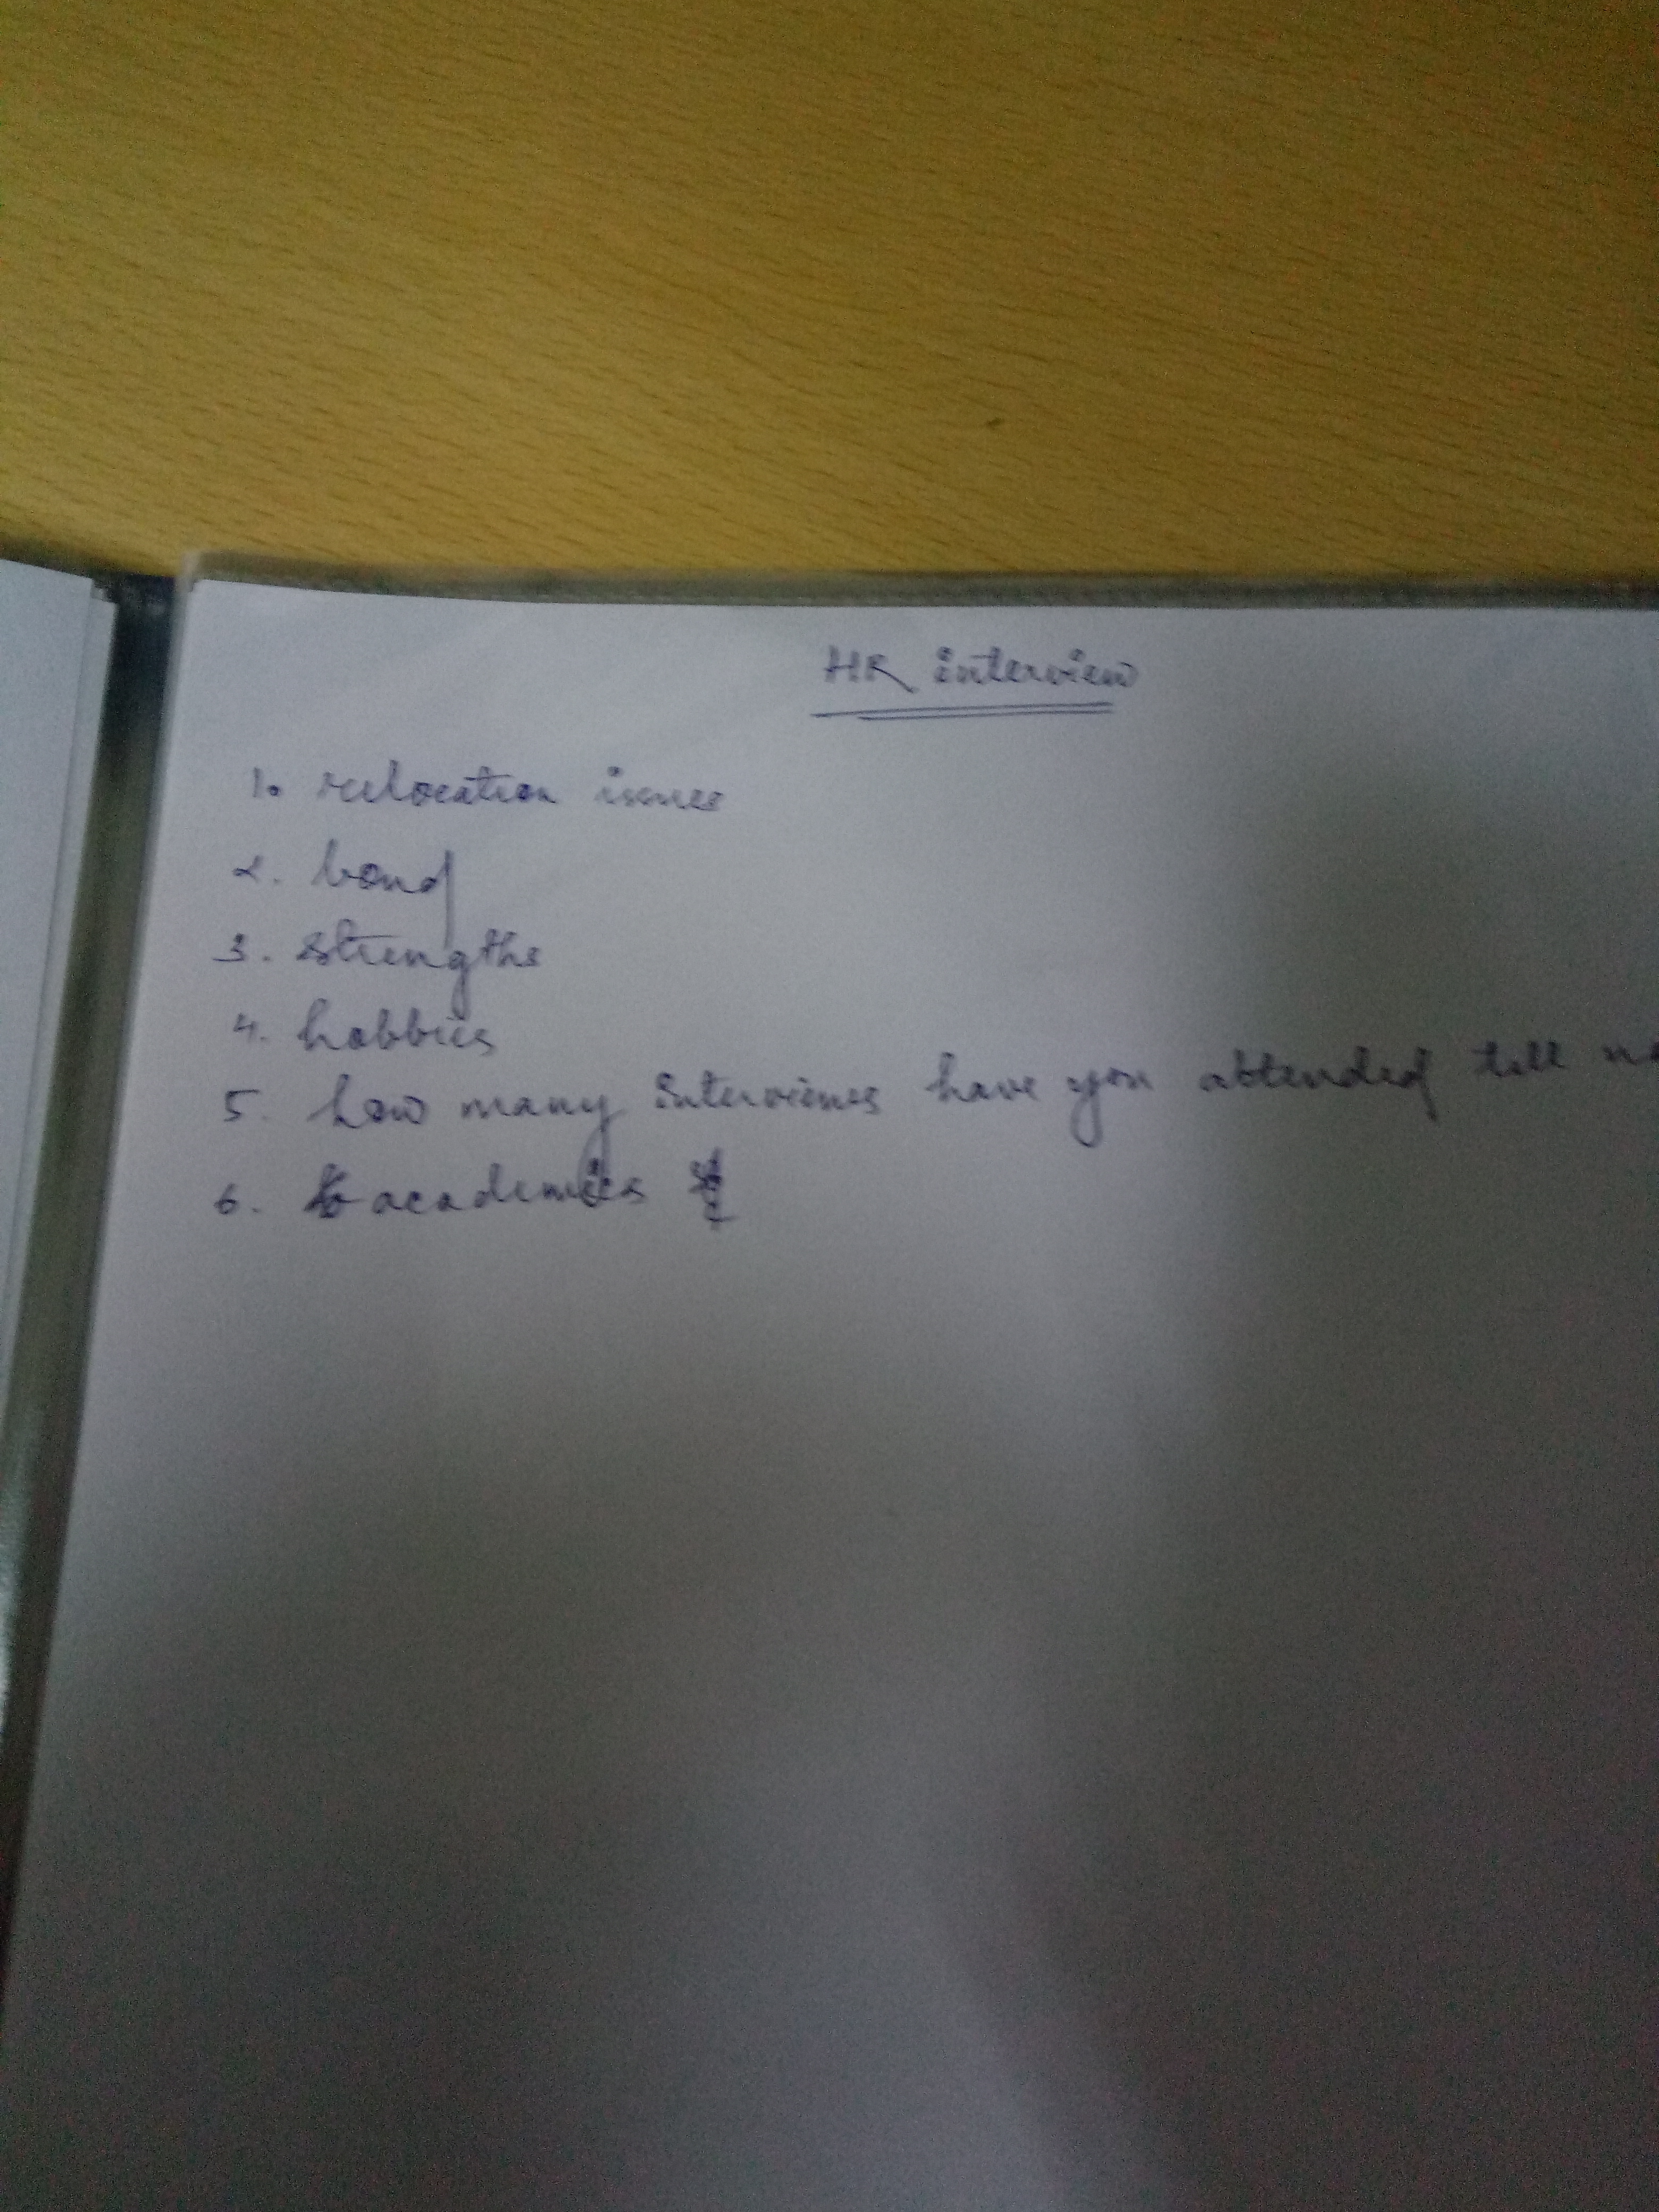 HR interview
1. relocation issues
2. bond
3. strengths
4. hobbies
5. how many interviews have you attended till
6. academics